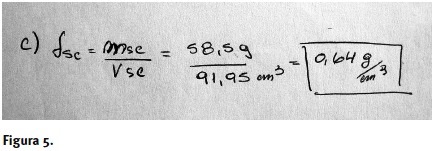 c) ρsc = msc / Vsc = 58,5 g / 91,95 cm³ = 0,64 g/cm³
Figura 5.